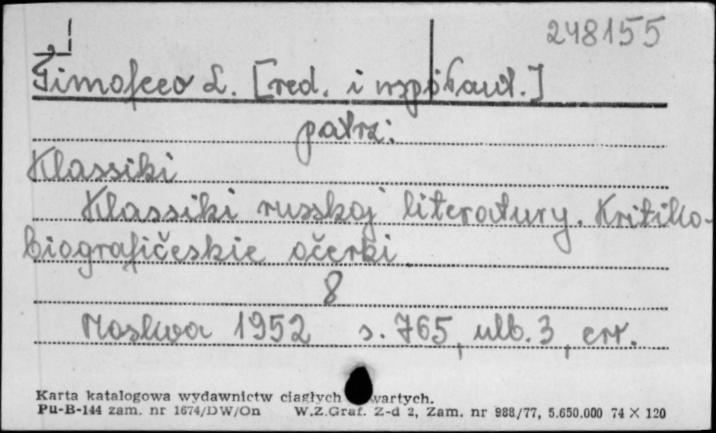 248155
Timofeev L. [red. i współaut.]
patrz:
Klassiki
Klassiki russkoj literatury. Kritiko-
biografičeskie očerki
8
Moskva 1952 s. 765, nlb. 3, err.
Karta katalogowa wydawnictw ciągłych wartych.
Pu-B-144 zam. nr 1674/DW/On W.Z.Graf. Z-d 2, Zam. nr 988/77, 5.650.000 74 X 120